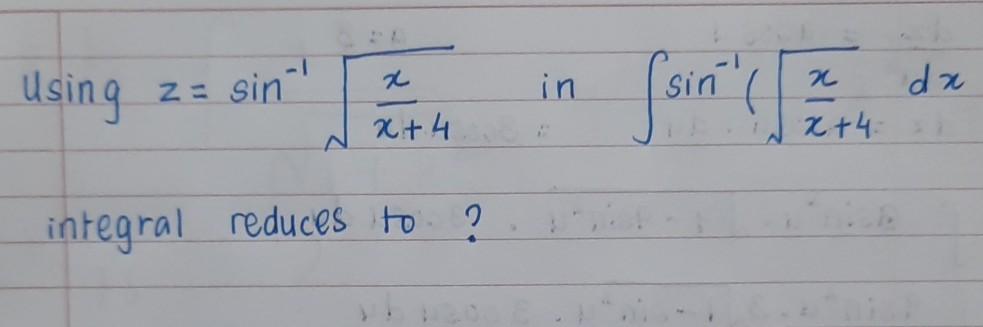 Using z = sin⁻¹ √(x/(x+4)) in ∫ sin⁻¹ (√(x/(x+4)) dx
integral reduces to ?